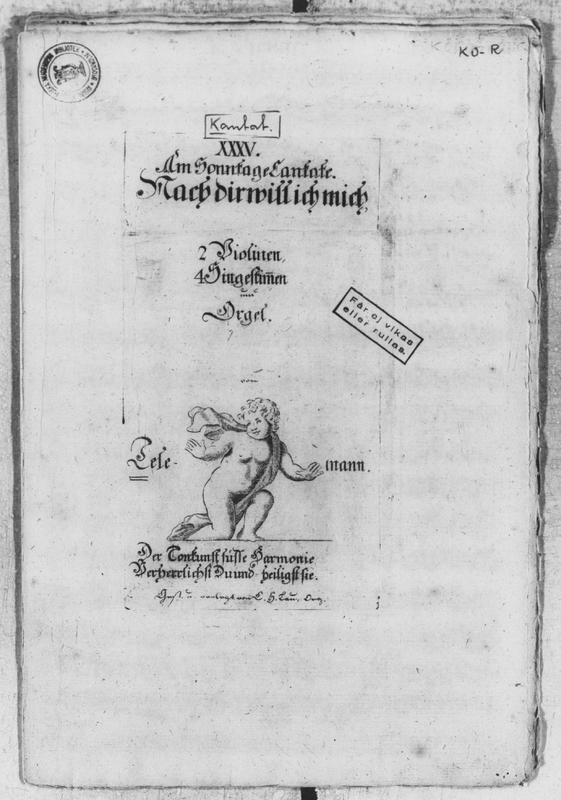 KO-R
Kantat.
XXXV.
Am Sonntage Cantate.
Nach dir will ich mich
2 Violinen,
4 Singestim̄en
und
Orgel.
Får ej vikas
eller rullas.
von
Tele-
mann.
Der Tonkunst süsse Harmonie
Verherrlichst Du und heiligst sie.
C. H. Lau, Org.